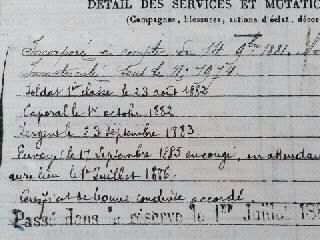 DÉTAIL DES SERVICES ET MUTATIO
(Campagnes, blessures, actions d'éclat, décor
Incorporé à compter du 14 9bre 1881.
Immatriculé sous le No 7974.
Soldat 1re classe le 23 août 1882
Caporal le 1er octobre 1882
Sergent le 23 septembre 1883.
Envoyé le 17 Septembre 1885 en congé, en attendan
aura lieu le 1er Juillet 1886.
Certificat de bonne conduite accordé
Passé dans la réserve le 1er Juillet 188